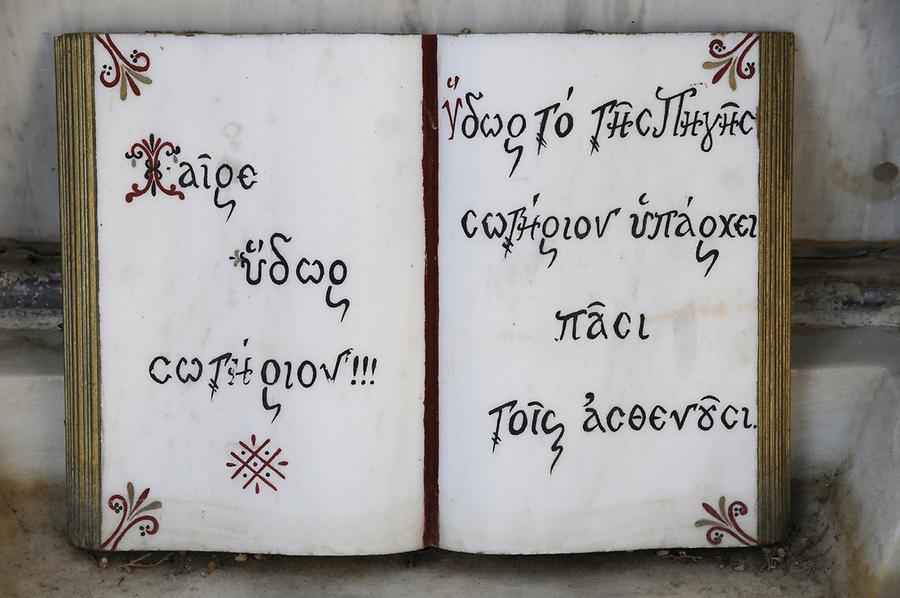 Χαῖρε
ὕδωρ
σωτήριον!!!
Ὕδωρ τό τῆς Πηγῆς
σωτήριον ὑπάρχει
πᾶσι
τοῖς ἀσθενοῦσι.